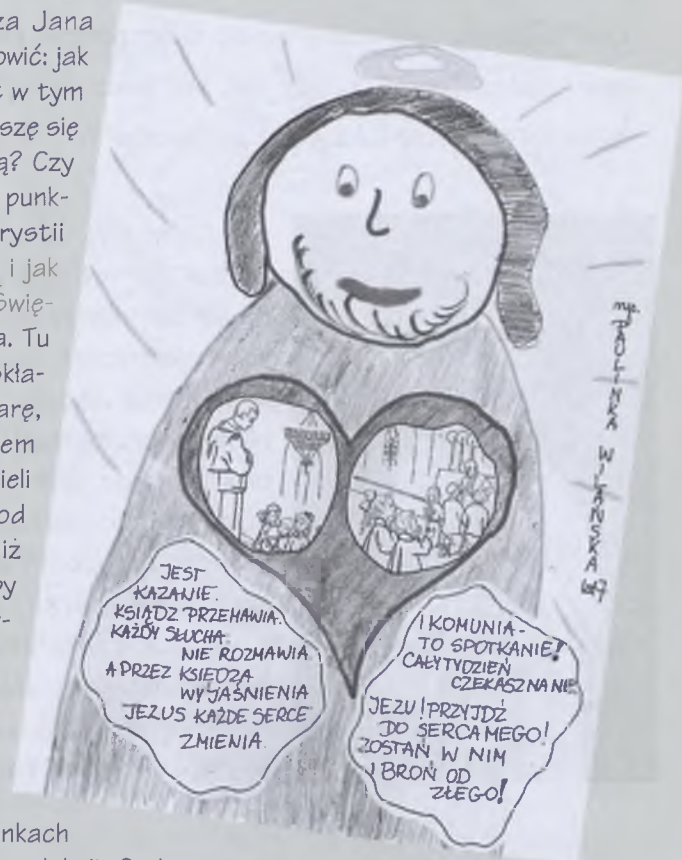 za Jana
owić: jak
t w tym
szę się
ą? Czy
punk-
rystii
i jak
Świę-
a. Tu
okła-
arę,
em
ieli
od
iż
by
nkach
JEST
KAZANIE.
KSIĄDZ PRZEMAWIA.
KAŻDY SŁUCHA
NIE ROZMAWIA
A PRZEZ KSIĘDZA
WYJAŚNIENIA
JEZUS KAŻDE SERCE
ZMIENIA.
I KOMUNIA-
TO SPOTKANIE!
CAŁY TYDZIEŃ
CZEKASZ NA NIE
JEZU! PRZYJDŹ
DO SERCA MEGO!
ZOSTAŃ W NIM
I BROŃ OD
ZŁEGO!
PAULINKA WILAŃSKA